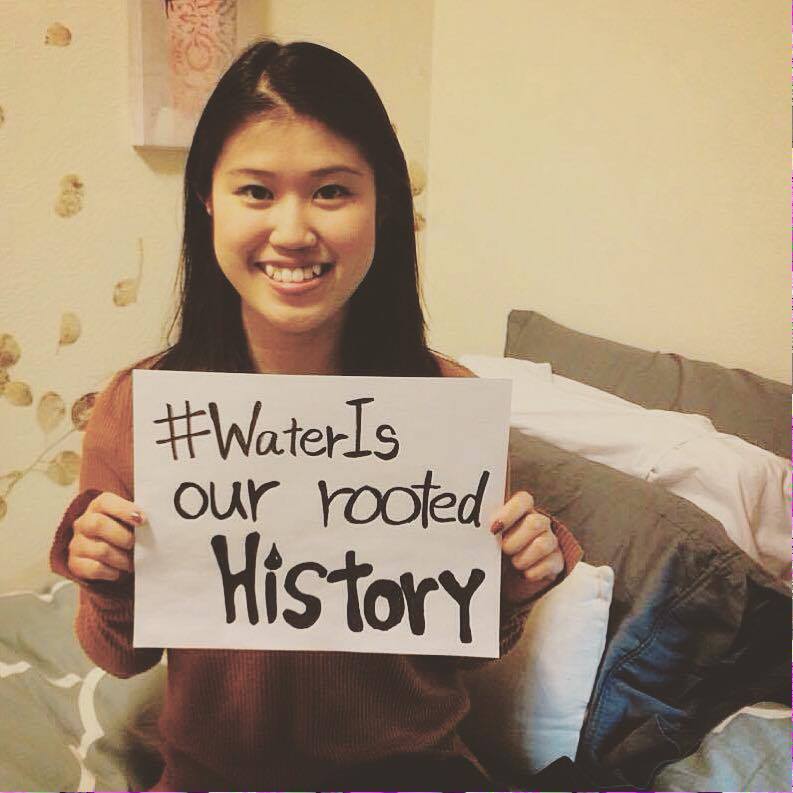 #WaterIs
our rooted
History